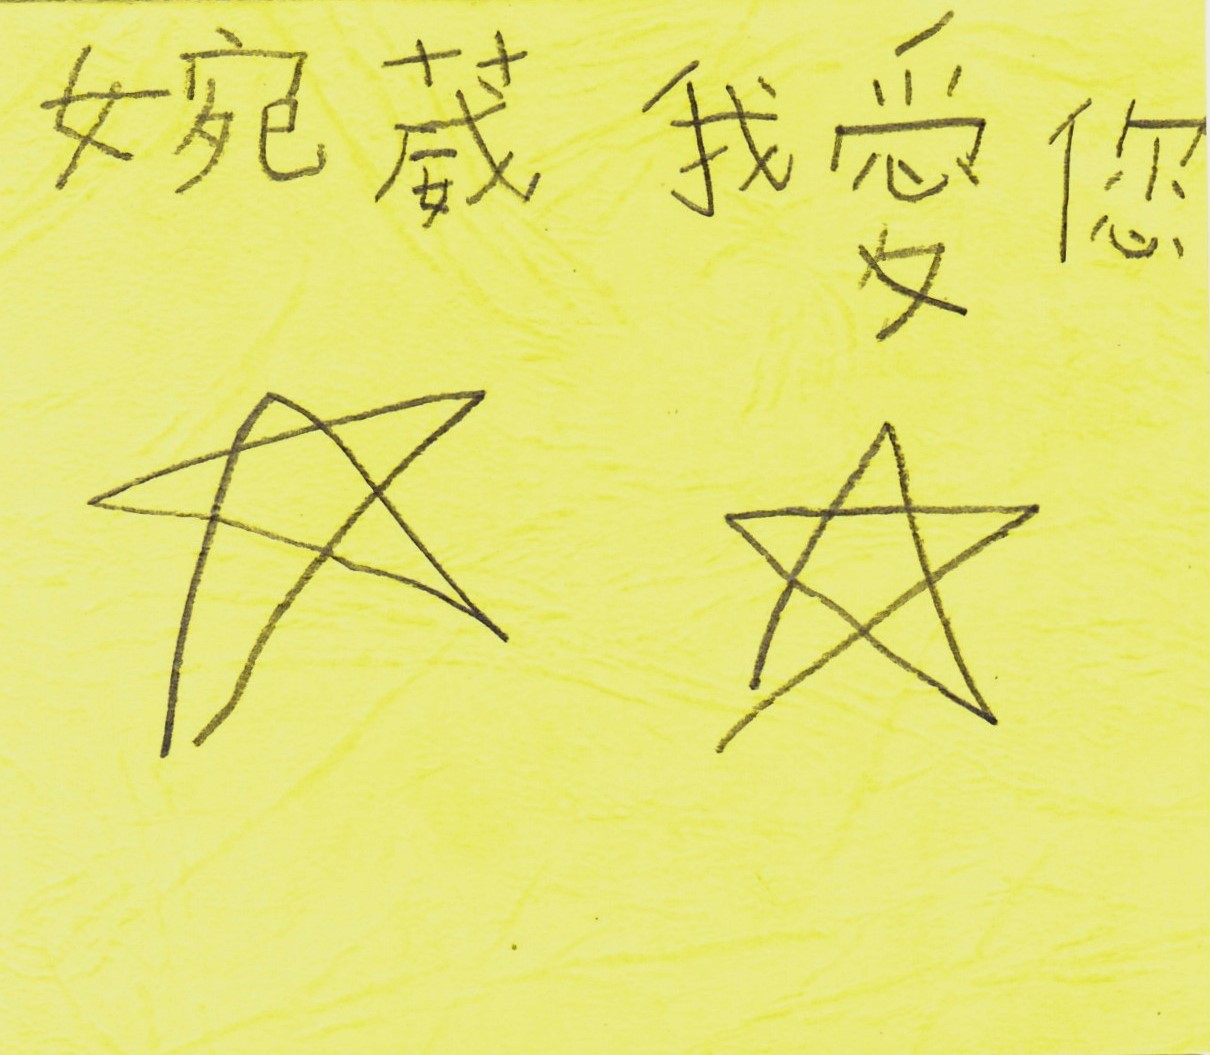 婉葳 我愛您